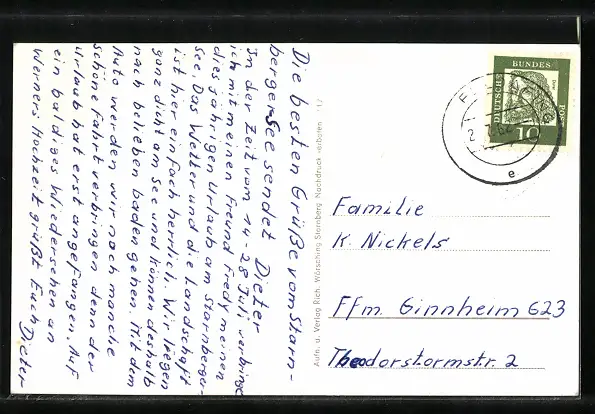 Die besten Grüße vom Starn-
bergersee sendet Dieter
In der Zeit vom 14-28 Juli verbringe
ich mit meinen Freund Fredy meinen
diesjährigen Urlaub am Starnberger-
see. Das Wetter und die Landschaft
ist hier einfach herrlich. Wir liegen
ganz dicht am See und können deshalb
nach belieben baden gehen. Mit dem
Auto werden wir noch manche
schöne Fahrt verbringen denn der
Urlaub hat erst angefangen. Auf
ein baldiges Wiedersehen an
Werners Hochzeit grüßt Euch Dieter
Aufn. u. Verlag Rich. Wörsching Starnberg Nachdruck verboten
DEUTSCHE
BUNDES
POST
10
e
Familie
K. Nickels
Ffm. Ginnheim 623
Theodorstormstr. 2